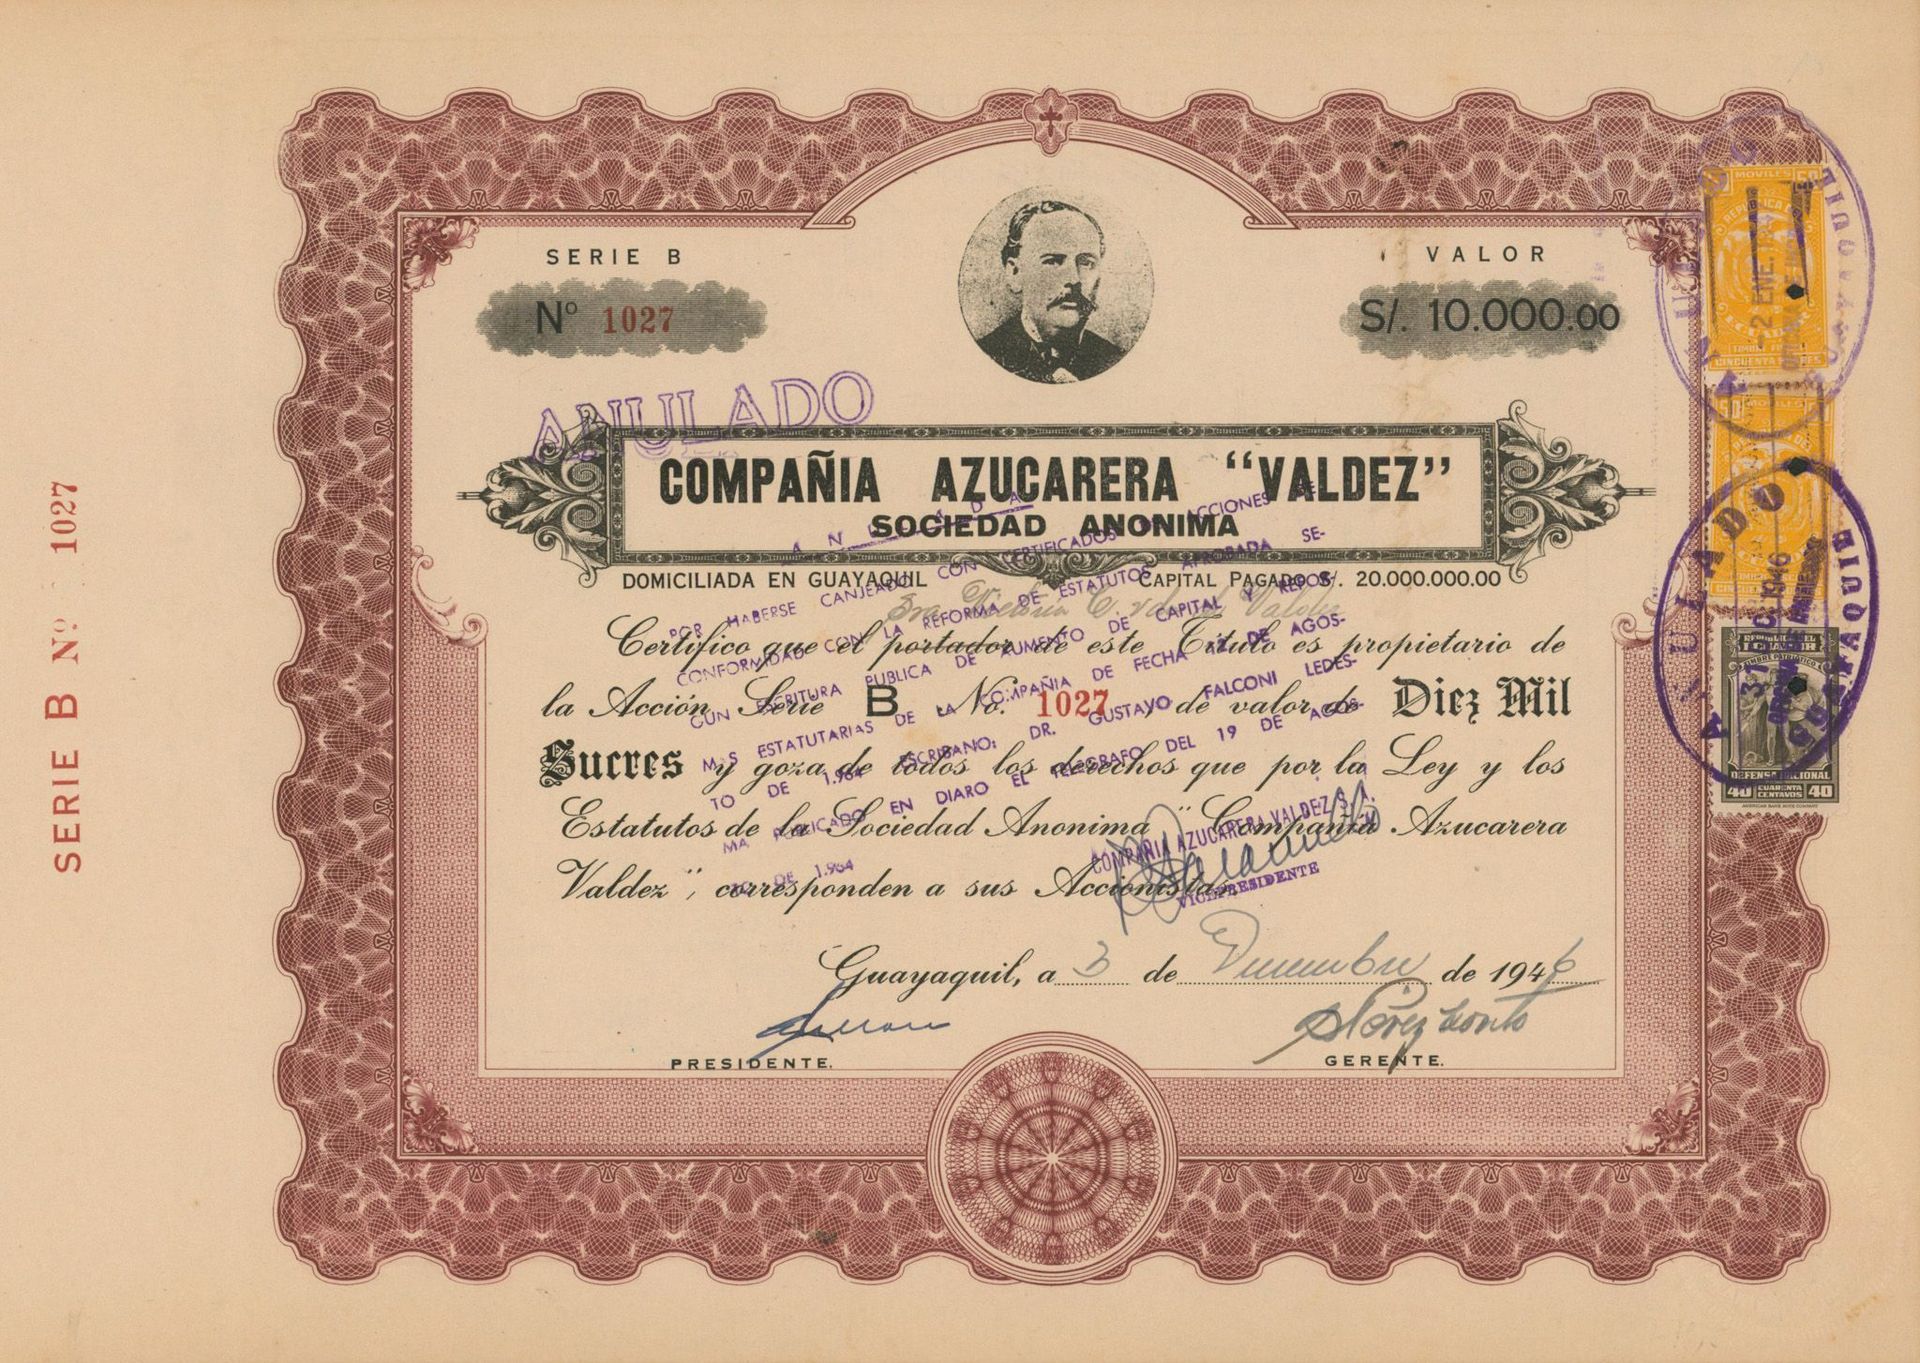 SERIE B
VALOR
Nº 1027
S/. 10.000.00
ANULADO
COMPAÑIA AZUCARERA "VALDEZ"
SOCIEDAD ANONIMA
DOMICILIADA EN GUAYAQUIL
CAPITAL PAGADO S/. 20.000.000.00
Sra. Victoria C. v. de Valdez
Certifico que el portador de este Título es propietario de
la Acción Serie B No. 1027, de valor de Diez Mil
Sucres y goza de todos los derechos que por la Ley y los
Estatutos de la Sociedad Anonima "Compañia Azucarera
Valdez", corresponden a sus Accionistas
Guayaquil, a 3 de Diciembre de 1946
PRESIDENTE.
GERENTE.
ANULADA
POR HABERSE CANJEADO CON CERTIFICADOS DE ACCIONES DE
CONFORMIDAD CON LA REFORMA DE ESTATUTOS APROBADA SE-
GUN ESCRITURA PUBLICA DE AUMENTO DE CAPITAL Y REFOR-
MAS ESTATUTARIAS DE LA COMPAÑIA DE FECHA DE AGOS-
TO DE 1.964 ESCRIBANO: DR. GUSTAVO FALCONI LEDES-
MA PUBLICADO EN DIARO EL TELEGRAFO DEL 19 DE AGOS-
TO DE 1.964
COMPAÑIA AZUCARERA VALDEZ S.A.
VICEPRESIDENTE
SERIE B Nº 1027
MOVILES 50
REPUBLICA DEL
ECUADOR
TIMBRE FISCAL
CINCUENTA SUCRES
2 ENE. 194
50 MOVILES
ANULADO
GUAYAQUIL
31 DIC 1946
REPUBLICA DEL
ECUADOR
TIMBRE PATRIOTICO
DEFENSA NACIONAL
40 CUARENTA CENTAVOS 40
AMERICAN BANK NOTE COMPANY